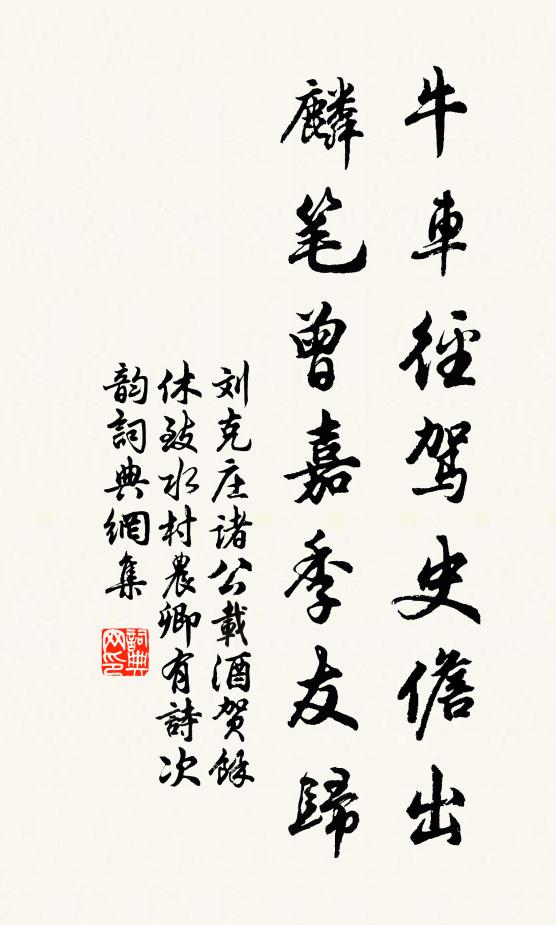 牛車徑駕史儋出
麟笔曾嘉季友歸
刘克庄诸公載酒贺餘
休致水村農卿有詩次
韵詞典網集
詞典
网印